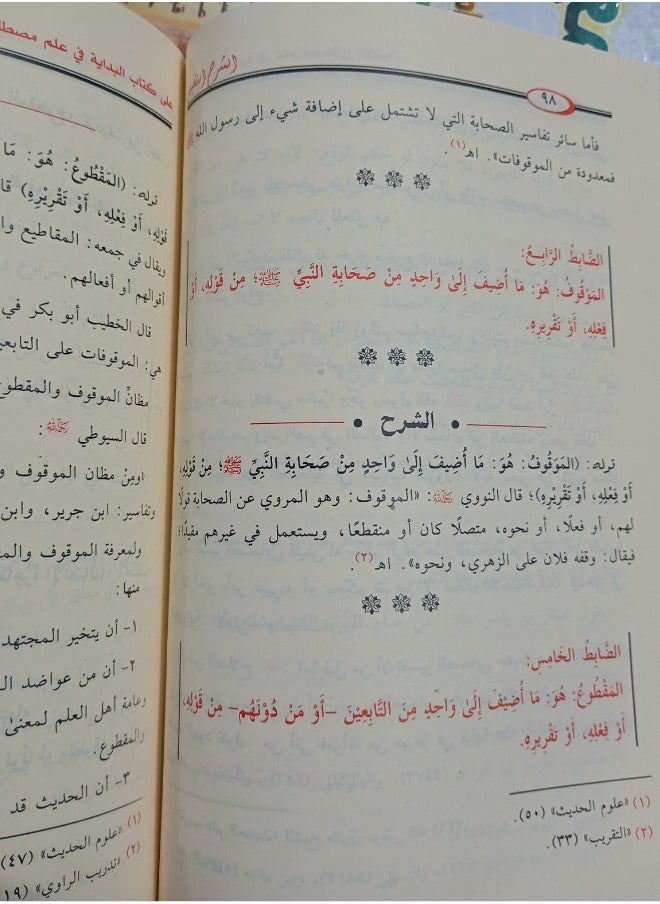 الشرح
٩٨
فأما سائر تفاسير الصحابة التي لا تشتمل على إضافة شيء إلى رسول الله ﷺ
فمعدودة من الموقوفات». اهـ(١).
الضَّابِطُ الرَّابِعُ:
المَوْقُوفُ: هُوَ: مَا أُضِيفَ إِلَىٰ وَاحِدٍ مِنْ صَحَابَةِ النَّبِيِّ ﷺ؛ مِنْ قَوْلِهِ، أَوْ
فِعْلِهِ، أَوْ تَقْرِيرِهِ.
• الشرح •
قوله: (المَوْقُوفُ: هُوَ: مَا أُضِيفَ إِلَىٰ وَاحِدٍ مِنْ صَحَابَةِ النَّبِيِّ ﷺ؛ مِنْ قَوْلِهِ،
أَوْ فِعْلِهِ، أَوْ تَقْرِيرِهِ)؛ قال النووي رَحِمَهُ اللهُ: «الموقوف: وهو المروي عن الصحابة قولًا
لهم، أو فعلًا، أو نحوه، متصلًا كان أو منقطعًا، ويستعمل في غيرهم مقيدًا؛
فيقال: وقفه فلان على الزهري، ونحوه». اهـ(٢).
الضَّابِطُ الخَامِسُ:
المَقْطُوعُ: هُوَ: مَا أُضِيْفَ إِلَىٰ وَاحِدٍ مِنَ التَّابِعِيْنَ -أَوْ مَنْ دُوْنَهُم- مِنْ قَوْلِهِ،
أَوْ فِعْلِهِ، أَوْ تَقْرِيرِهِ.
(١) «علوم الحديث» (٥٠).
(٢) «التقريب» (٣٣).
على كتاب البداية في علم
قوله: (المَقْطُوعُ: هُوَ: مَا
قَوْلِهِ، أَوْ فِعْلِهِ، أَوْ تَقْرِيرِهِ) قا
ويقال في جمعه: المقاطيع وا
أقوالهم أو أفعالهم.
قال الخطيب أبو بكر في
هي: الموقوفات على التابعي
مظانِّ الموقوف والمقطوع
قال السيوطي رَحِمَهُ اللهُ:
«ومِنْ مظان الموقوف و
وتفاسير: ابن جرير، وابن
ولمعرفة الموقوف والمق
منها:
١- أن يتخير المجتهد
٢- أن من عواضد ال
وعامة أهل العلم لمعنى
والمقطوع.
٣- أن الحديث قد
(١) «علوم الحديث» (٤٧)
(٢) «تدريب الراوي» (١٩